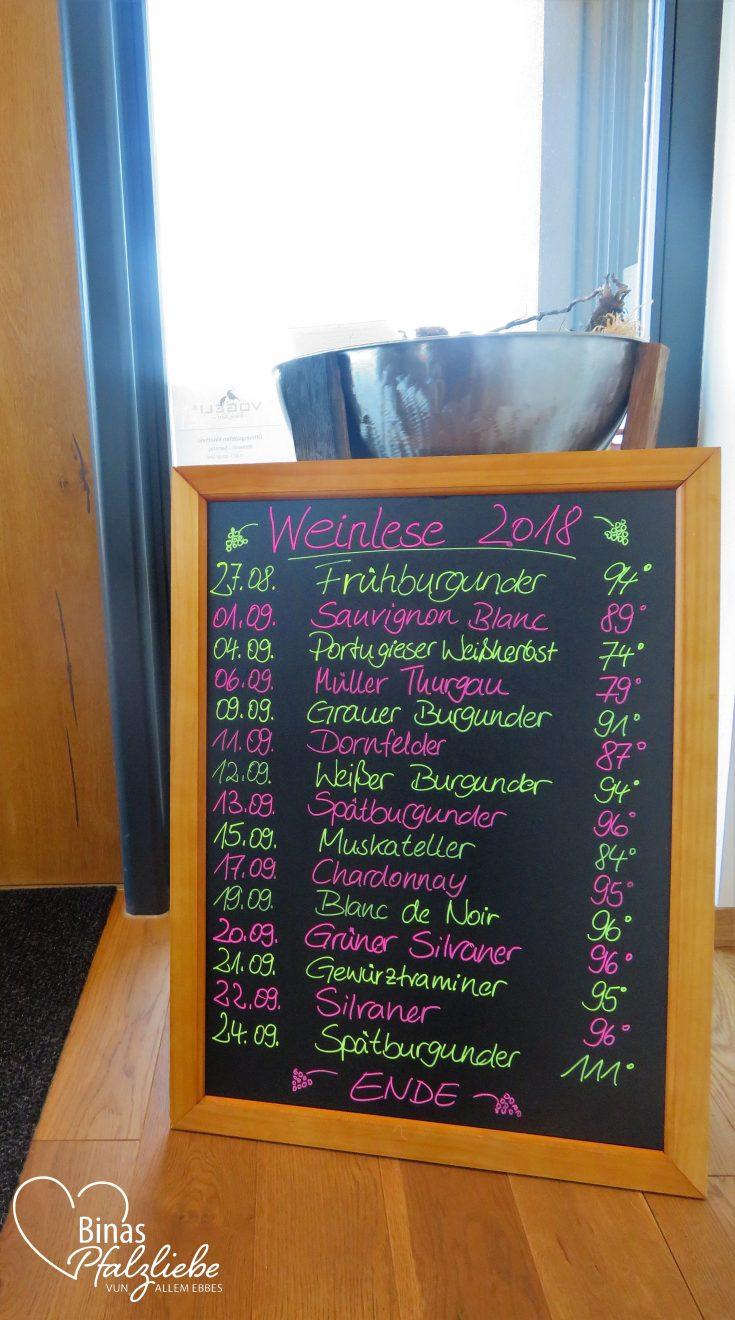 VOGELI
Öffnungszeiten
Weinlese 2018
27.08. Frühburgunder 94°
01.09. Sauvignon Blanc 89°
04.09. Portugieser Weißherbst 74°
06.09. Müller Thurgau 79°
09.09. Grauer Burgunder 91°
11.09. Dornfelder 87°
12.09. Weißer Burgunder 94°
13.09. Spätburgunder 96°
15.09. Muskateller 84°
17.09. Chardonnay 95°
19.09. Blanc de Noir 96°
20.09. Grüner Silvaner 96°
21.09. Gewürztraminer 95°
22.09. Silvaner 96°
24.09. Spätburgunder 111°
ENDE
Binas
Pfalzliebe
VUN ALLEM EBBES